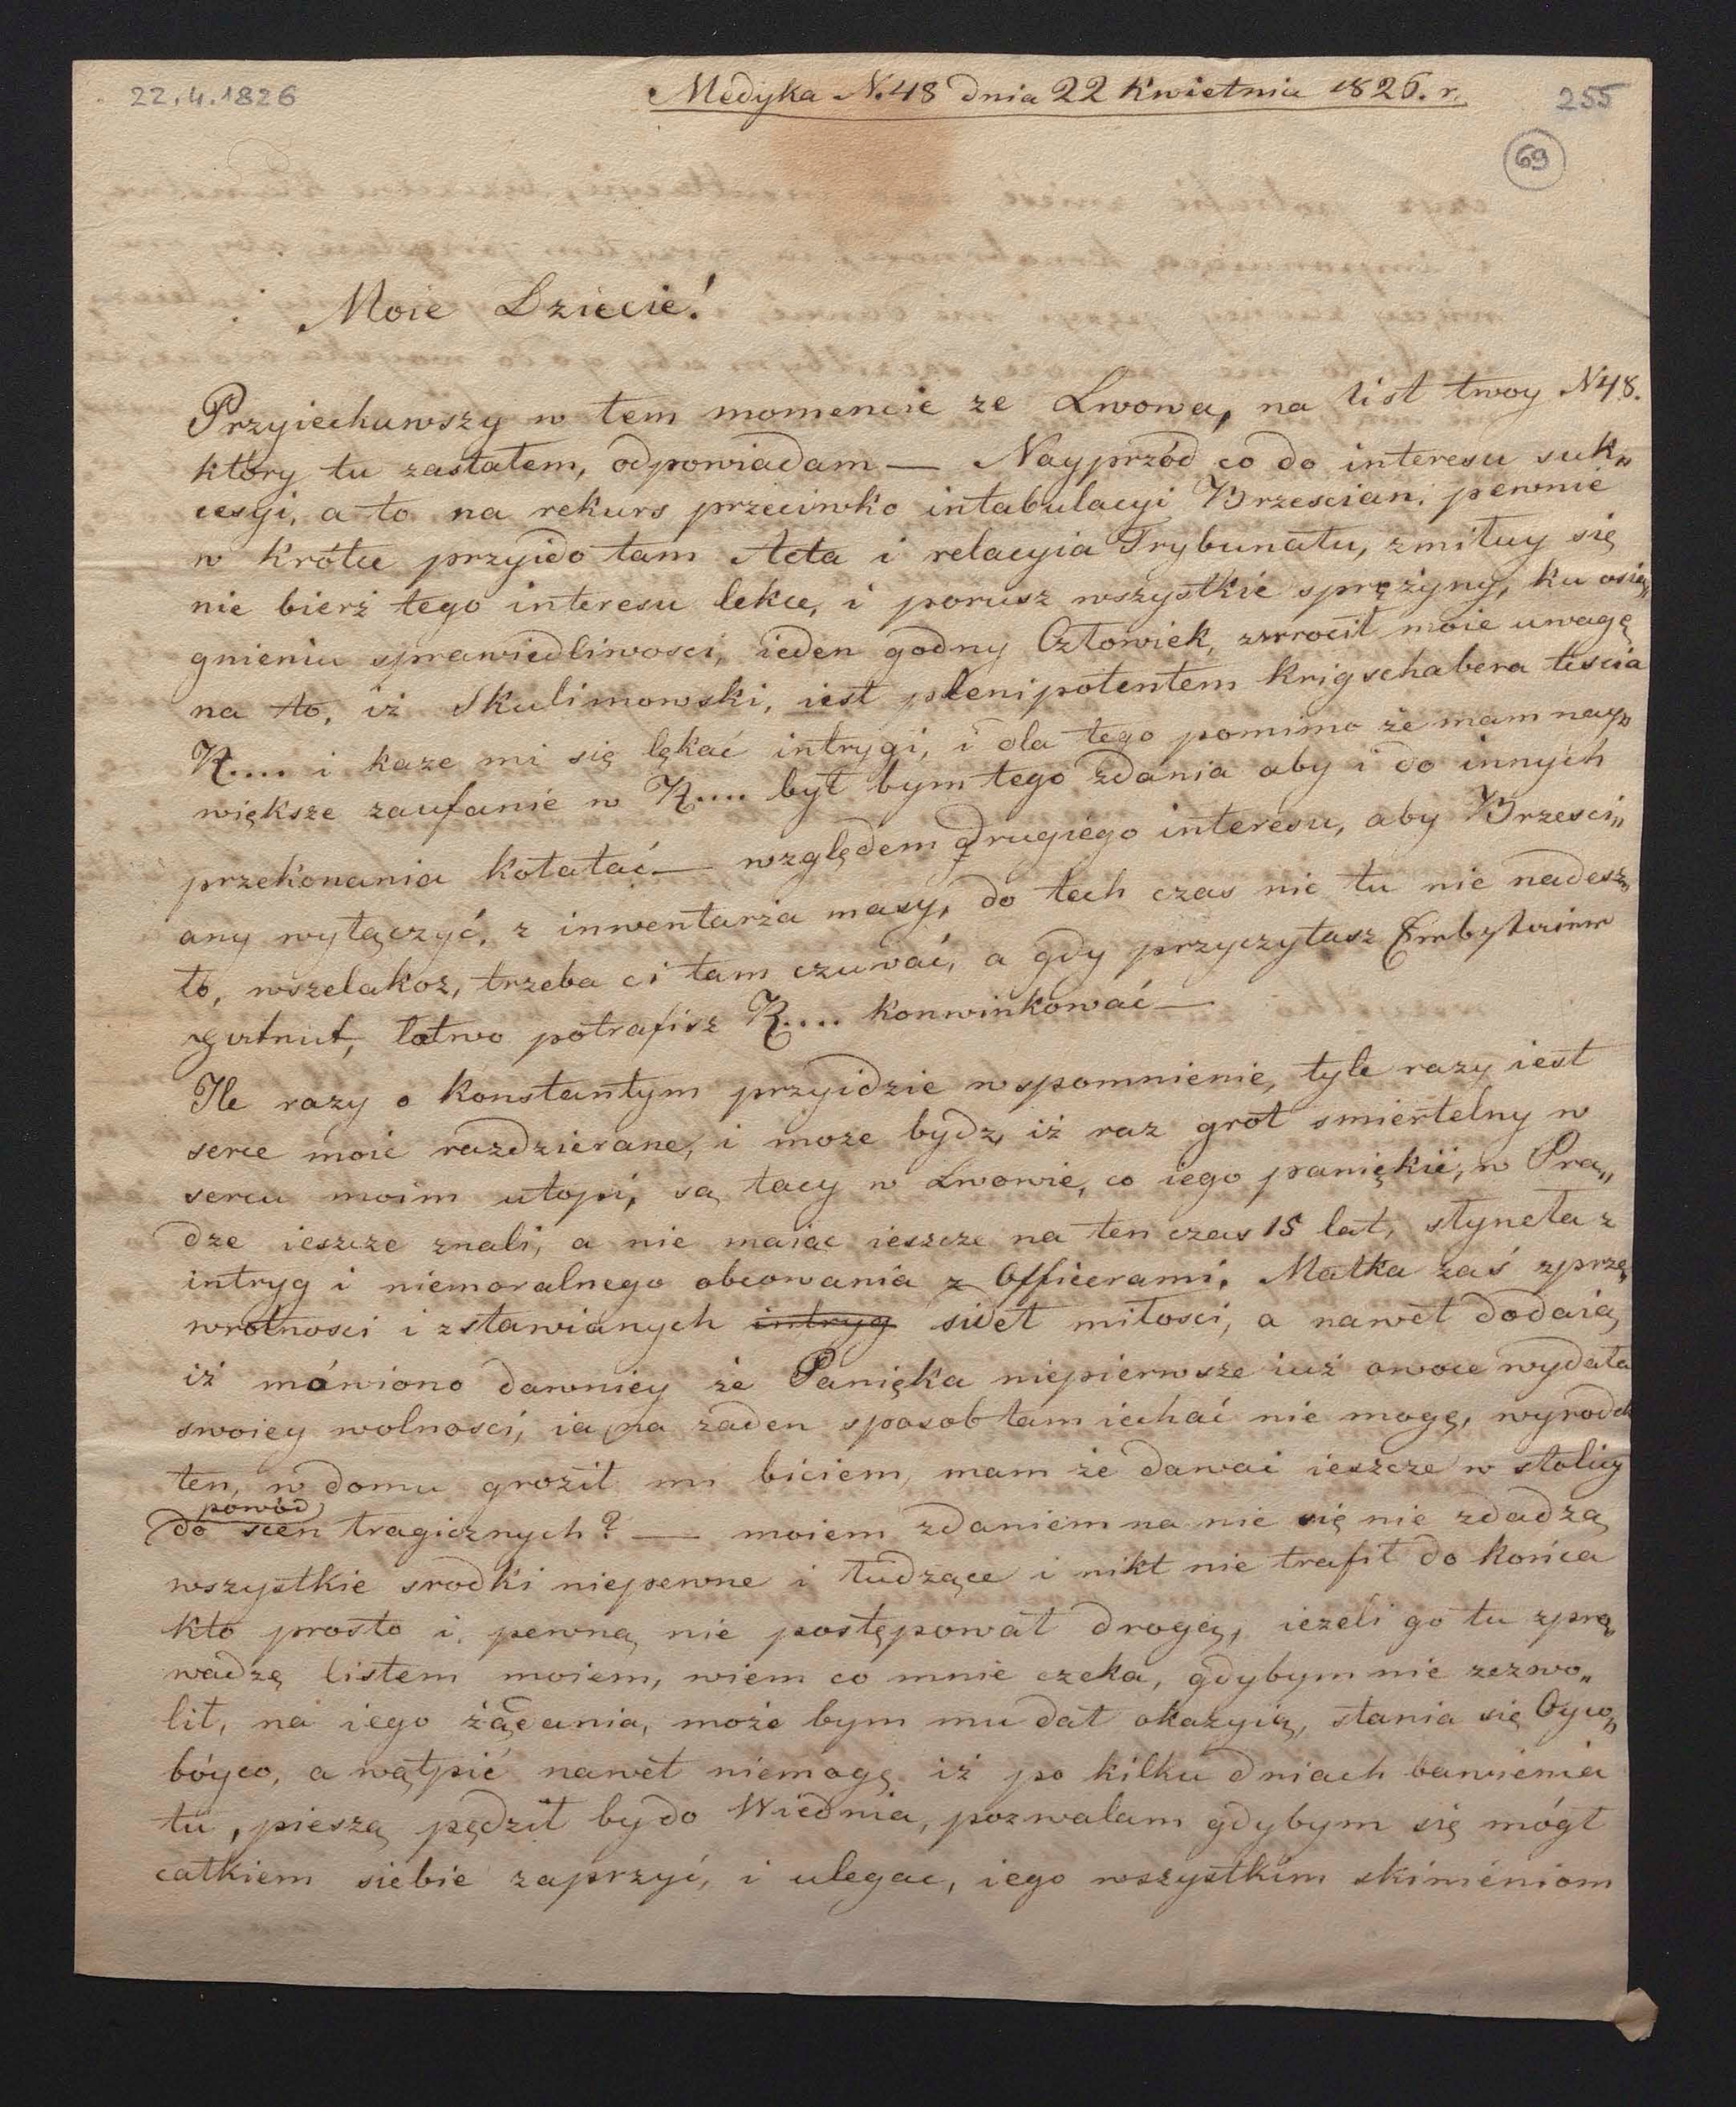 22.4.1826
Medyka N. 48 dnia 22 Kwietnia 1826. r.
255
69
Moie Dziecie!
Przyiechawszy w tem momencie ze Lwowa, na list twoy N 48.
ktory tu zastałem, odpowiadam — Nayprzód co do interesu suk„
cesyi, a to na rekurs przeciwko intabulacyi Brzescian, pewnie
w krótce przyido tam Acta i relacyia Trybunału, zmiłuy się
nie bierz tego interesu lekce, i porusz wszystkie sprężyny, ku osią„
gnieniu sprawiedliwosci, ieden godny Człowiek, zwrocił moie uwagę
na to, iż Skulimowski, iest plenipotentem Krigschabera tescia
K.... i kaze mi się lękać intrygi, i dla tego pomimo że mam nay„
większe zaufanie w K.... był bym tego zdania aby i do innych
przekonania kołatać — względem drugiego interesu, aby Brzesci„
any wyłączyć, z inwentarza masy, do tech czas nic tu nie nadesz„
ło, wszelakoz, trzeba ci tam czuwać, a gdy przyczytasz
łatwo potrafisz K.... konwinkować —
Ile razy o Konstantym przyidzie wspomnienie, tyle razy iest
serce moie razdzierane, i moze bydz, iż raz grot smiertelny w
sercu moim utopi, są tacy w Lwowie, co iego paniękię, w Pra„
dze ieszcze znali, a nie maiac ieszcze na ten czas 15 lat, słyneła z
intryg i niemoralnego obcowania z Officerami. Matka zaś z prze„
wrotnosci i zstawianych intryg sideł miłosci, a nawet dodaią
iż mówiono dawniey że Panięka niepierwsze iuż owoce wydała
swoiey wolnosci, ia na żaden sposob tam iechać nie mogę, wyrodek
ten, w domu groził mi biciem, mam że dawać ieszcze w stolicy
powód
do scen tragicznych? — moiem zdaniem na nic się nie zdadzą
wszystkie srodki niepewne i łudzące i nikt nie trafił do końca
kto prosto i pewną nie postępował drogą, ieżeli go tu zpra„
wadzę listem moiem, wiem co mnie czeka, gdybym nie zezwo„
lił, na iego żądania, może bym mu dał okazyią, stania się Oyco„
bóyco, a wątpić nawet niemogę iż po kilku dniach bawienia
tu, pieszą pędził by do Wiednia, pozwalam gdybym się mógł
całkiem siebie zaprzyć, i ulegac, iego wszystkim skinieniom